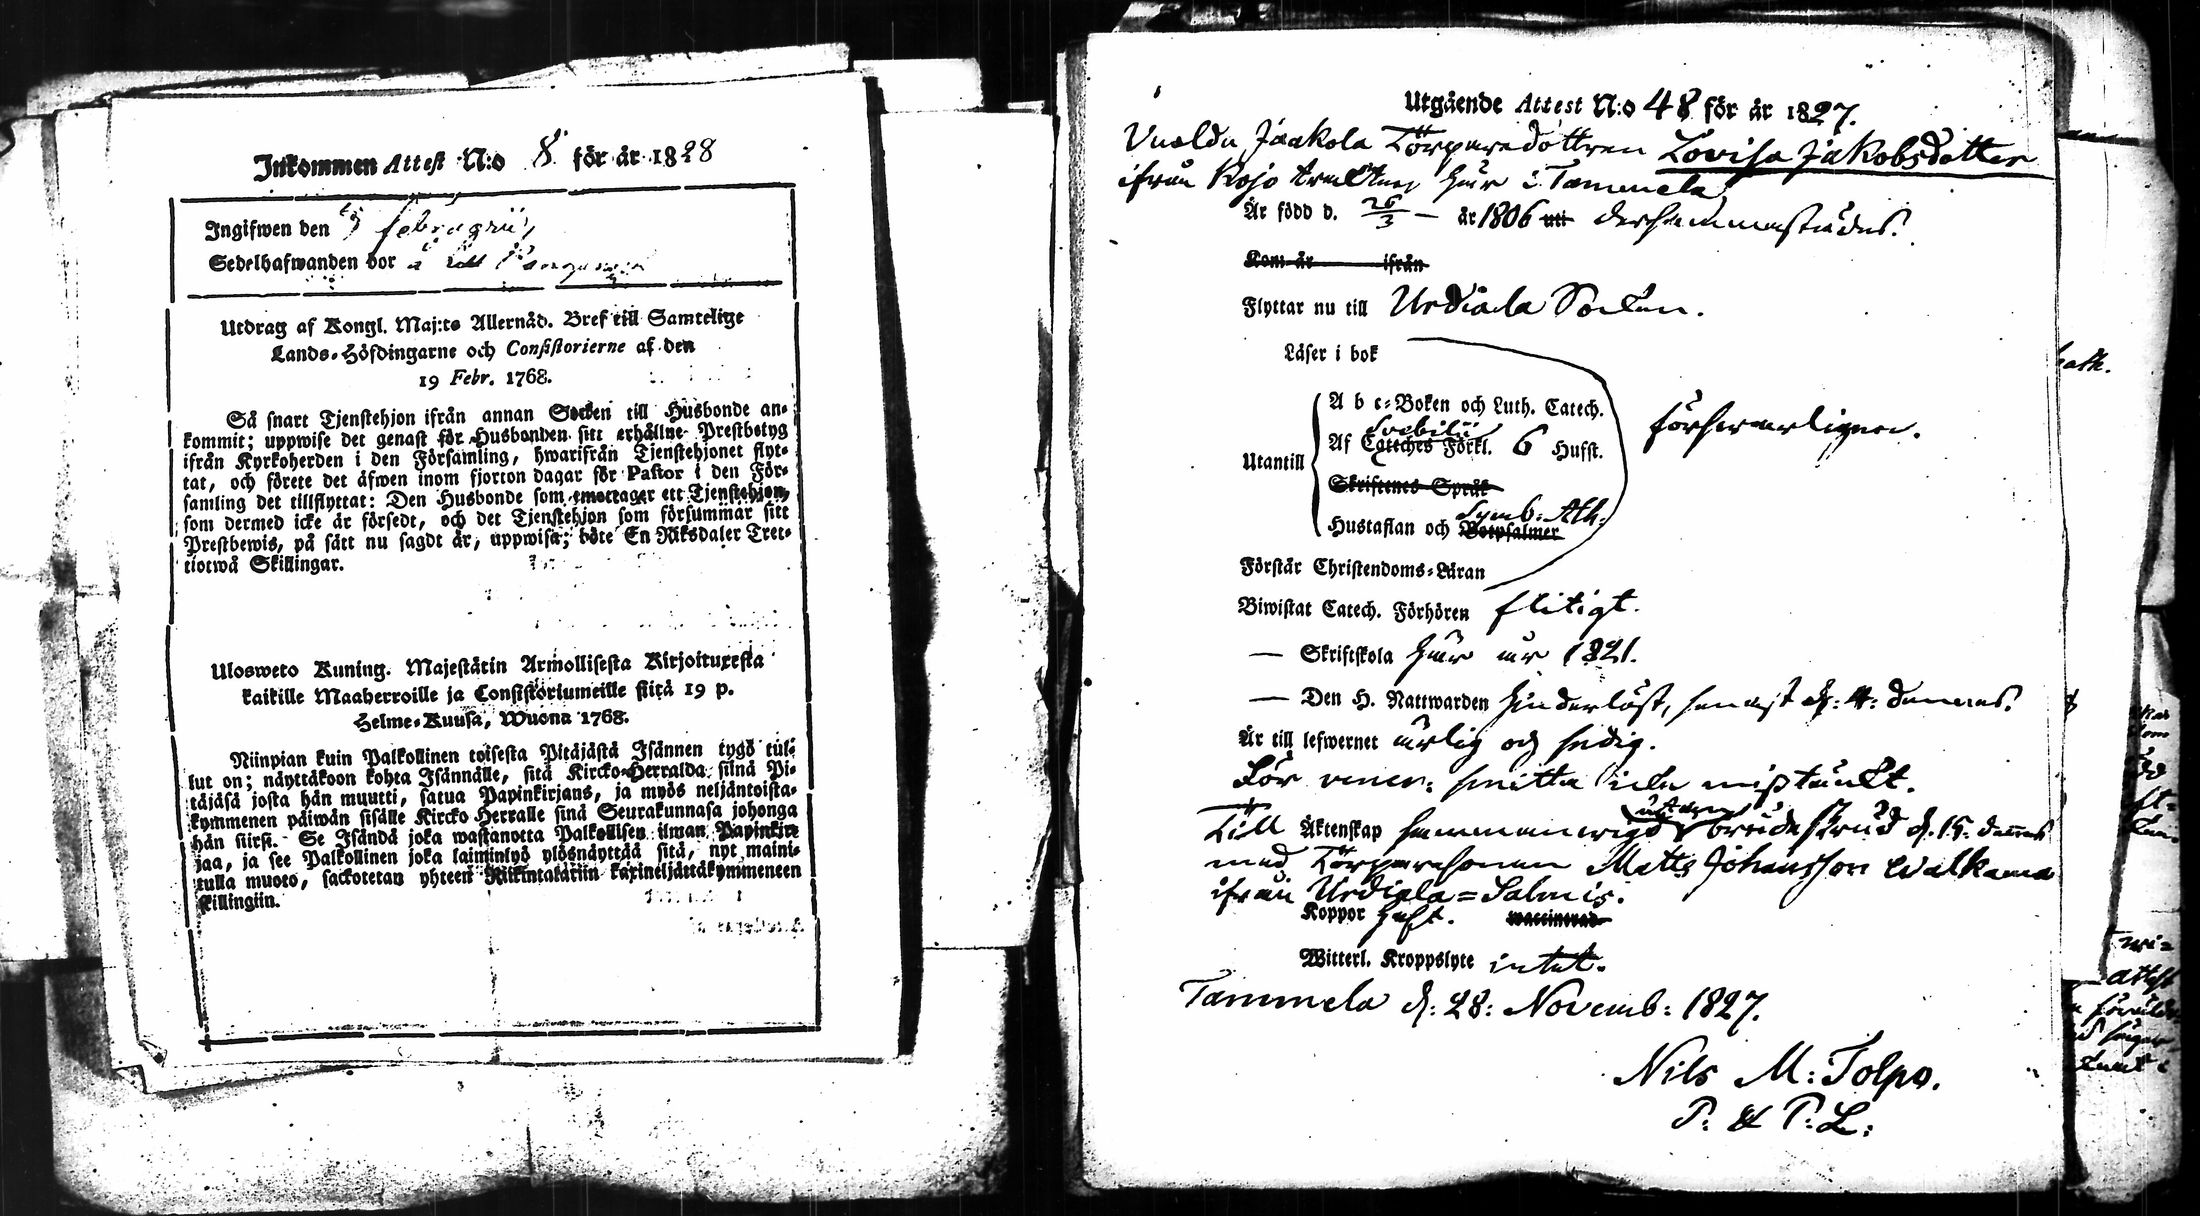 Inkommen Attest N:o 8 för år 1828
Ingifwen den februarii
Sedelhafwanden bor å
Utdrag af Kongl. Maj:ts Allernåd. Bref till Samtelige
Lands-Höfdingarne och Consistorierne af den
19 Febr. 1768.
Så snart Tjenstehjon ifrån annan Socken till Husbonde an-
kommit; uppwise det genast för Husbonden sitt erhållne Prestbetyg
ifrån Kyrkoherden i den Församling, hwarifrån Tjenstehjonet flyt-
tat, och förete det äfwen inom fjorton dagar för Pastor i den För-
samling det tillflyttat: Den Husbonde som emottager ett Tjenstehjon,
som dermed icke är försedt, och det Tjenstehjon som försummar sitt
Prestbewis, på sätt nu sagdt är, uppwisa; böte En Riksdaler Tret-
tiotwå Skillingar.
Ulosweto Kuning. Majestätin Armollisesta Kirjoituxesta
kaikille Maaherroille ja Consistoriumeille siitä 19 p.
Helme-Kuusa, Wuona 1768.
Niinpian kuin Palkollinen toisesta Pitäjästä Isännen tygö tul-
lut on; näyttäkoon kohta Isännälle, sitä Kircko-Herralda siinä Pi-
täjäsä josta hän muutti, saatua Papinkirjans, ja myös neljäntoista-
kymmenen päiwän sisälle Kircko Herralle siinä Seurakunnasa johonga
hän siirsi. Se Isändä joka wastanotta Palkollisen ilman Papinkir-
jaa, ja see Palkollinen joka laiminlyö ylösnäyttää sitä, nyt maini-
tulla muoto, sackotetan yhteen Riikintalariin kaxineljättäkymmeneen
killingiin.
Utgående Attest N:o 48 för år 1827.
Jaakola Torparedottren Lovisa Jakobsdotter
ifrån Kojo här i Tammela
Är född d. 26/3 — år 1806 uti dersammastädes.
Kom år ifrån
Flyttar nu till Urdiala Socken.
Läser i bok
A b c-Boken och Luth. Catech.
Svebilii
Utantill Af Cateches Förkl. 6 Hufst. försvarligen.
Skriftenes Språk
Symb: Ath:
Hustaflan och Botpsalmer
Förstår Christendoms-Läran
Biwistat Catech. Förhören flitigt.
— Skriftskola här år 1821.
— Den H. Nattwarden hinderlöst, senast d: 4: dennes.
Är till lefwernet ärlig och sedig.
För vener: smitta icke misstänkt.
utan
Till Äktenskap sammanvigd brudeskrud d. 15. dennes
med Torparesonen Matts Johansson Walkama
ifrån Urdiala=Salmis.
Koppor haft. waccinerad
Witterl. Kroppslyte intet.
Tammela d: 28: Novemb: 1827.
Nils M: Tolpo.
P. & P: L: